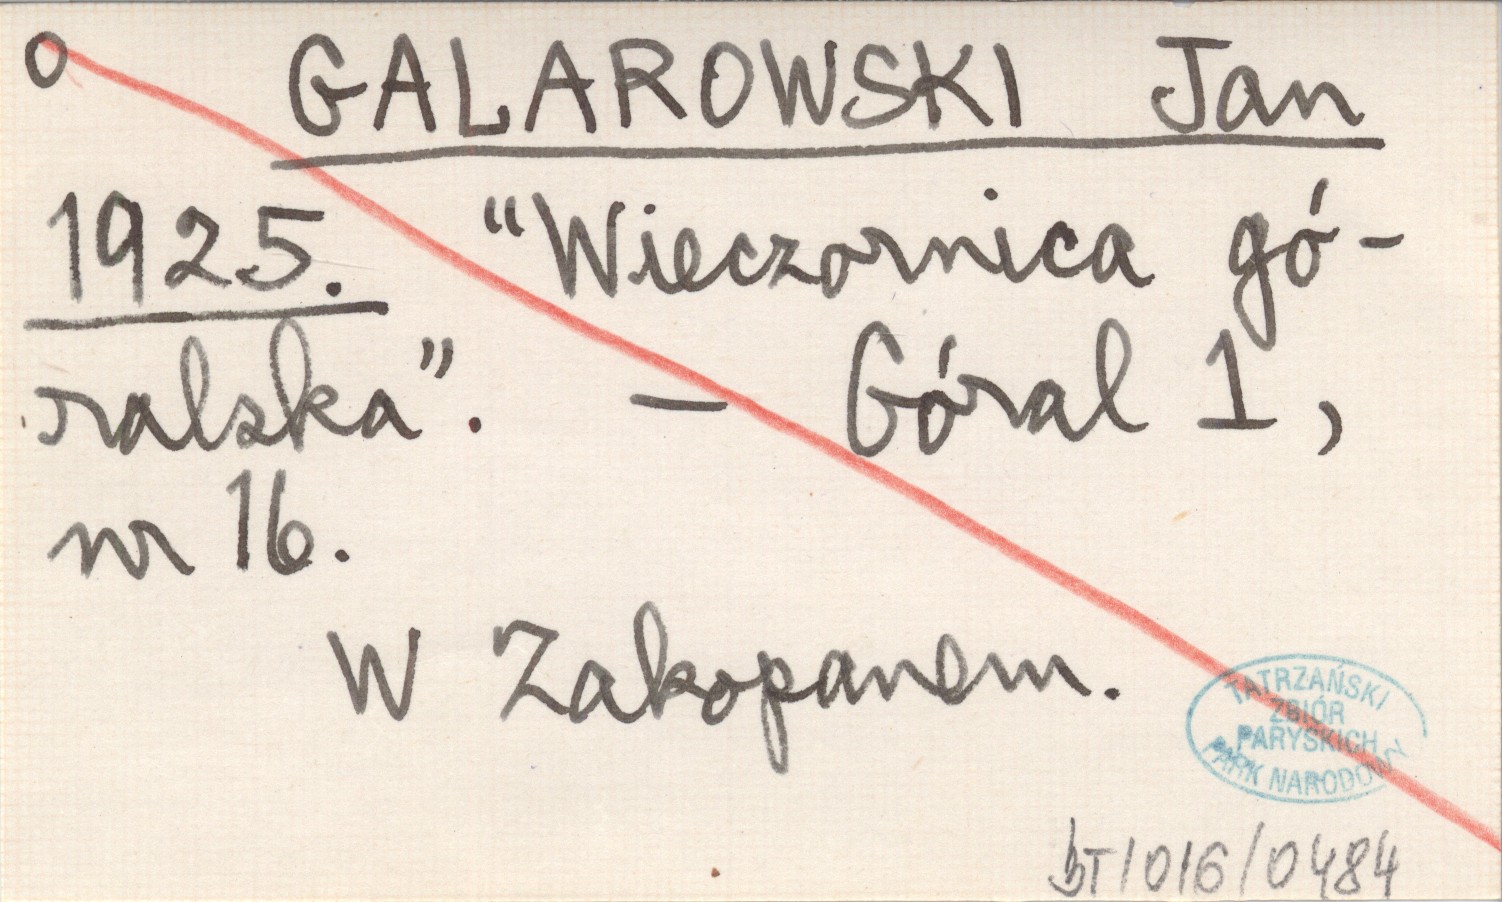 o GALAROWSKI Jan
1925. “Wieczornica gó-
ralska”. — Góral 1,
nr 16.
W Zakopanem.
TATRZAŃSKI
ZBIÓR
PARYSKICH
PARK NARODOWY
BT/016/0484